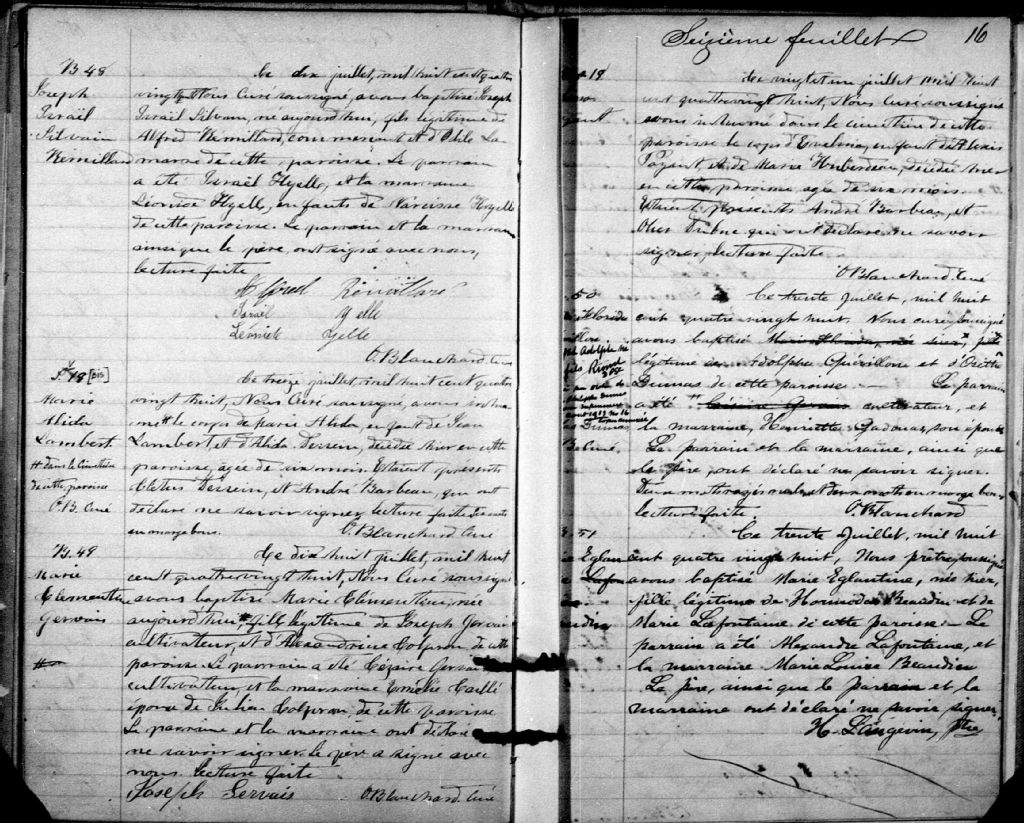 B 48
Joseph
Israël
Silvain
Rémillard
Ce dix juillet, mil huit cent quatre
vingt Nous Curé soussigné, avons baptisé Joseph
Israël Silvain, né aujourd'hui, fils légitime de
Alfred Rémillard, commercant et d'Odile La
marre de cette paroisse. Le parrain
a été Israël Hyelle, et la marraine
Léonise Hyell, enfants de Narcisse Hyelle
de cette paroisse. Le parrain et la marraine
ainsi que le père, ont signé avec nous,
lecture faite
Alfred Rémillard
Israël Yelle
Yelle
O. Blanchard. Curé
S. 18 [bis]
Marie
Alida
Lambert
# dans le cimetière
de cette paroisse
O. B. Curé
Ce treize juillet, mil huit cent quatre
vingt huit, Nous Curé soussigné, avons inhu
mé # le corps de Marie Alida, enfant de Jean
Lambert, et d'Alida Dessein, décédée hier en cette
paroisse, agée de six mois. Etaient présents
Cletus Dessein, et André Barbeau, qui ont
déclaré ne savoir signer. Lecture faite
en marge bons. O. Blanchard Curé
B. 49
Marie
Clementine
Gervais
Ce dix huit juillet, mil huit
cent quatrevingt huit, Nous Curé soussigné
avons baptisé Marie Clementine, née
aujourd'hui, fille légitime de Joseph Gervais
cultivateur, et d'Alexandrine Colpron de cette
paroisse. Le parrain a été Césaire Gervais
cultivateur, et la marraine Emélie Caillé
épouse de Julien Colpron, de cette paroisse
Le parrain et la marraine ont déclaré
ne savoir signer. Le père a signé avec
nous. Lecture faite
Joseph Gervais O. Blanchard. Curé
Seizième feuillet 16
19
Ce vingt et un juillet mil huit
cent quatre vingt huit, Nous Curé soussigné
avons inhumé dans le cimetière de cette
paroisse le corps d'Evelina, enfant d'Alexis
Payant et de Marie Huberdeau, décédée hier
en cette paroisse, agée de six mois.
Etaient présents André Barbeau, et
qui ont déclaré ne savoir
signer, lecture faite.
O. Blanchard. Curé
50
Ce trente Juillet, mil huit
cent quatre vingt huit. Nous curé soussigné
avons baptisé
légitime de Adolphe Quérillon et d'
Dumas de cette paroisse — Le parrain
a été cultivateur, et
la marraine, Henriette Gadoua, son épouse
Le parrain et la marraine, ainsi que
le père, ont déclaré ne savoir signer.
lecture faite. O. Blanchard
51
Eglan
Lafon
Ce trente Juillet, mil huit
cent quatre vingt huit, Nous prêtre soussigné
avons baptisé Marie Eglantine, née hier,
fille légitime de Hormisdas Beaudin et de
Marie Lafontaine de cette paroisse — Le
parrain a été Alexandre Lafontaine, et
la marraine Marie Louise Beaudin
Le père, ainsi que le parrain et la
marraine ont déclaré ne savoir signer.
H. Langevin, ptre